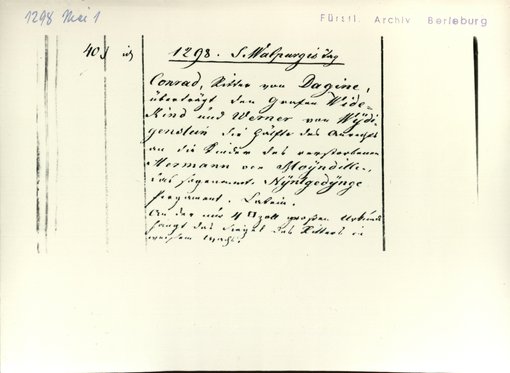 1298 Mai 1
Fürstl. Archiv Berleburg
40
1298. S. Walpurgis Tag
Conrad, Ritter von Dagine,
überträgt den Grafen Wide-
kind und Werner von Wÿdi-
genstein die Hälfte des
an die Kinder des verstorbenen
Hermann von
das sogenannt.
Pergament. Latein.
An der nur 4 □ Zoll großen Urkunde
hängt das Siegel des Ritters in
weißem Wachs.